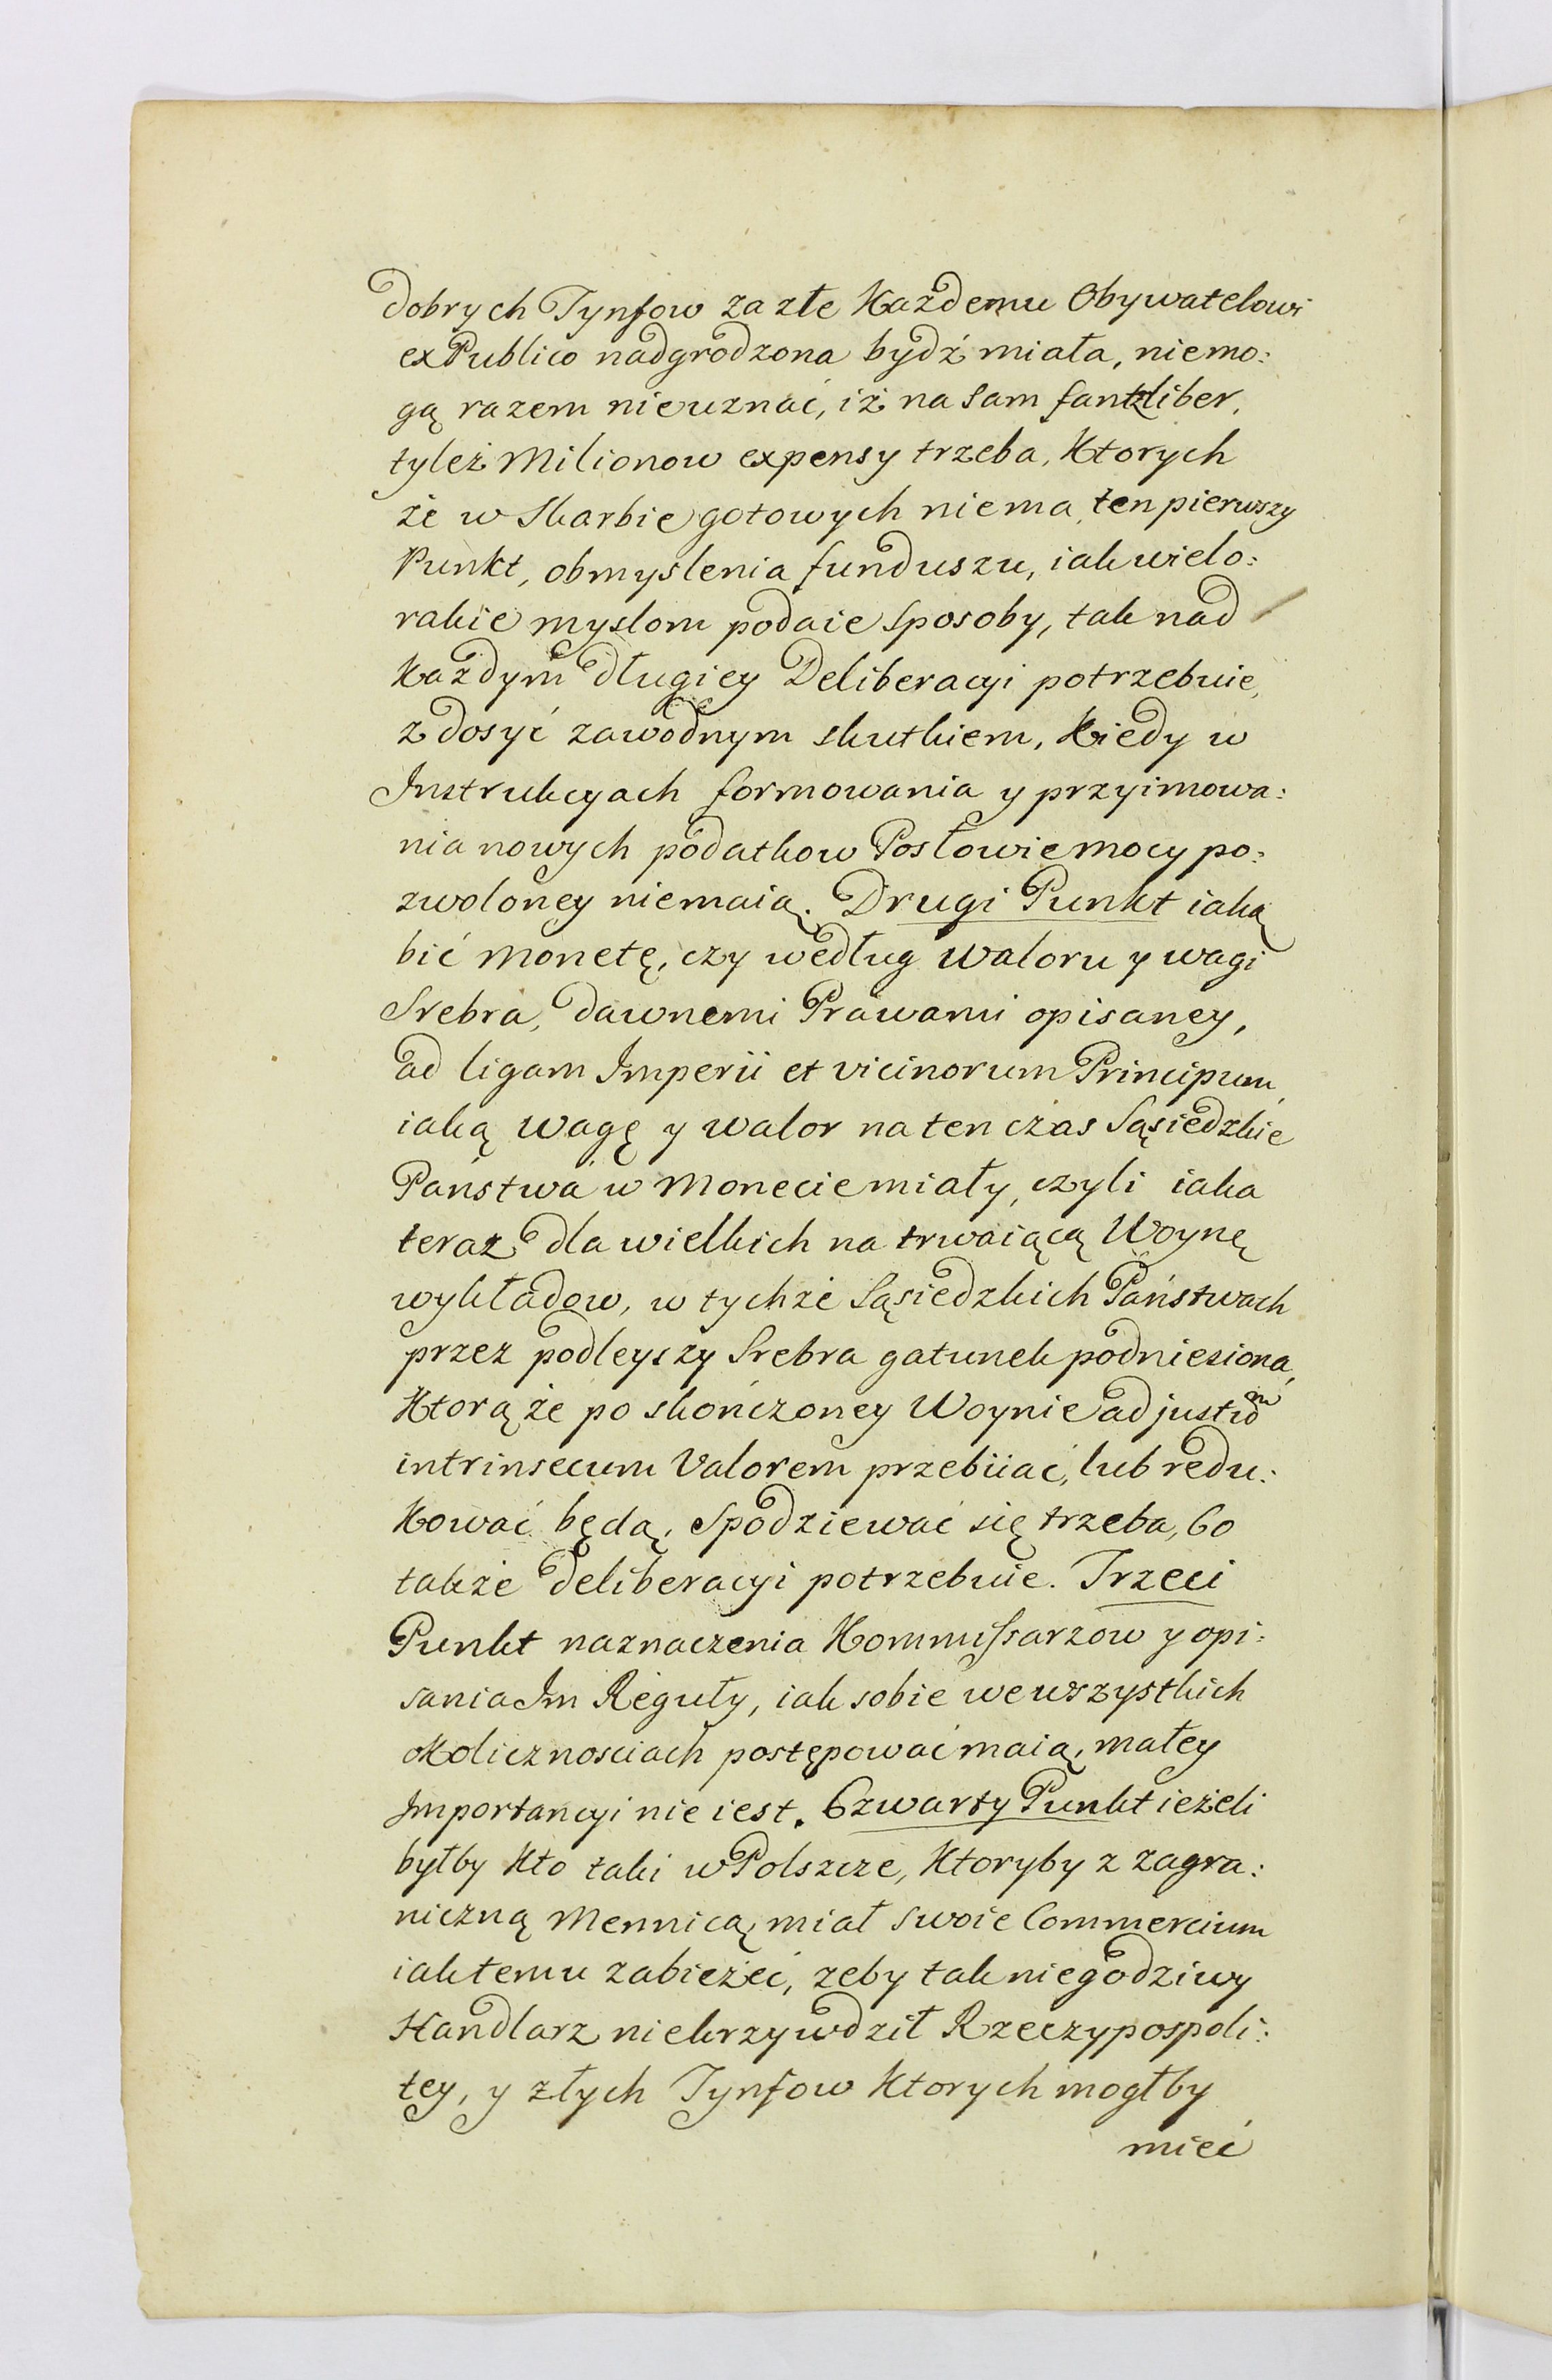 dobrych Tynfow za złe Każdemu Obywatelowi
ex Publico nadgrodzona bydź miała, niemo:
gą razem nieuznać, iż na sam fantzliber,
tyleż Milionow expensy trzeba, Ktorych
że w Skarbie gotowych niema, ten pierwszy
Punkt, obmyslenia funduszu, iak wielo:
rakie myslom podaie sposoby, tak nad
Każdym długiey Deliberacyi potrzebuie,
z dosyć zawodnym skutkiem, Kiedy w
Instrukcyach formowania y przyimowa:
nia nowych podatkow Posłowie mocy po:
zwoloney niemaią. Drugi Punkt iaką
bić monetę, czy według waloru y wagi
Srebra, dawnemi Prawami opisaney,
ad ligam Imperii et vicinorum Principum,
iaką wagę y walor na ten czas Sąsiedzkie
Państwa w Monecie miały, czyli iaka
teraz dla wielkich na trwaiącą Woynę
wykładow, w tychże Sąsiedzkich Państwach
przez podleyszy Srebra gatunek podniesiona,
Ktorą że po skończoney Woynie ad justũ
intrinsecum Valorem przebiiać, lub redu:
kować będą, spodziewać się trzeba, bo
także deliberacyi potrzebuie. Trzeci
Punkt naznaczenia Kommissarzow y opi:
sania Im Reguły, iak sobie we wszystkich
okolicznosciach postępować maią, małey
Importancyi nie iest. Czwarty Punkt ieżeli
byłby Kto taki w Polszcze, Ktoryby z zagra:
niczną Mennicą, miał swoie Commercium
iak temu zabieżeć, żeby tak niegodziwy
Handlarz niekrzywdził Rzeczypospoli:
tey, y złych Tynfow Ktorych mogłby
mieć